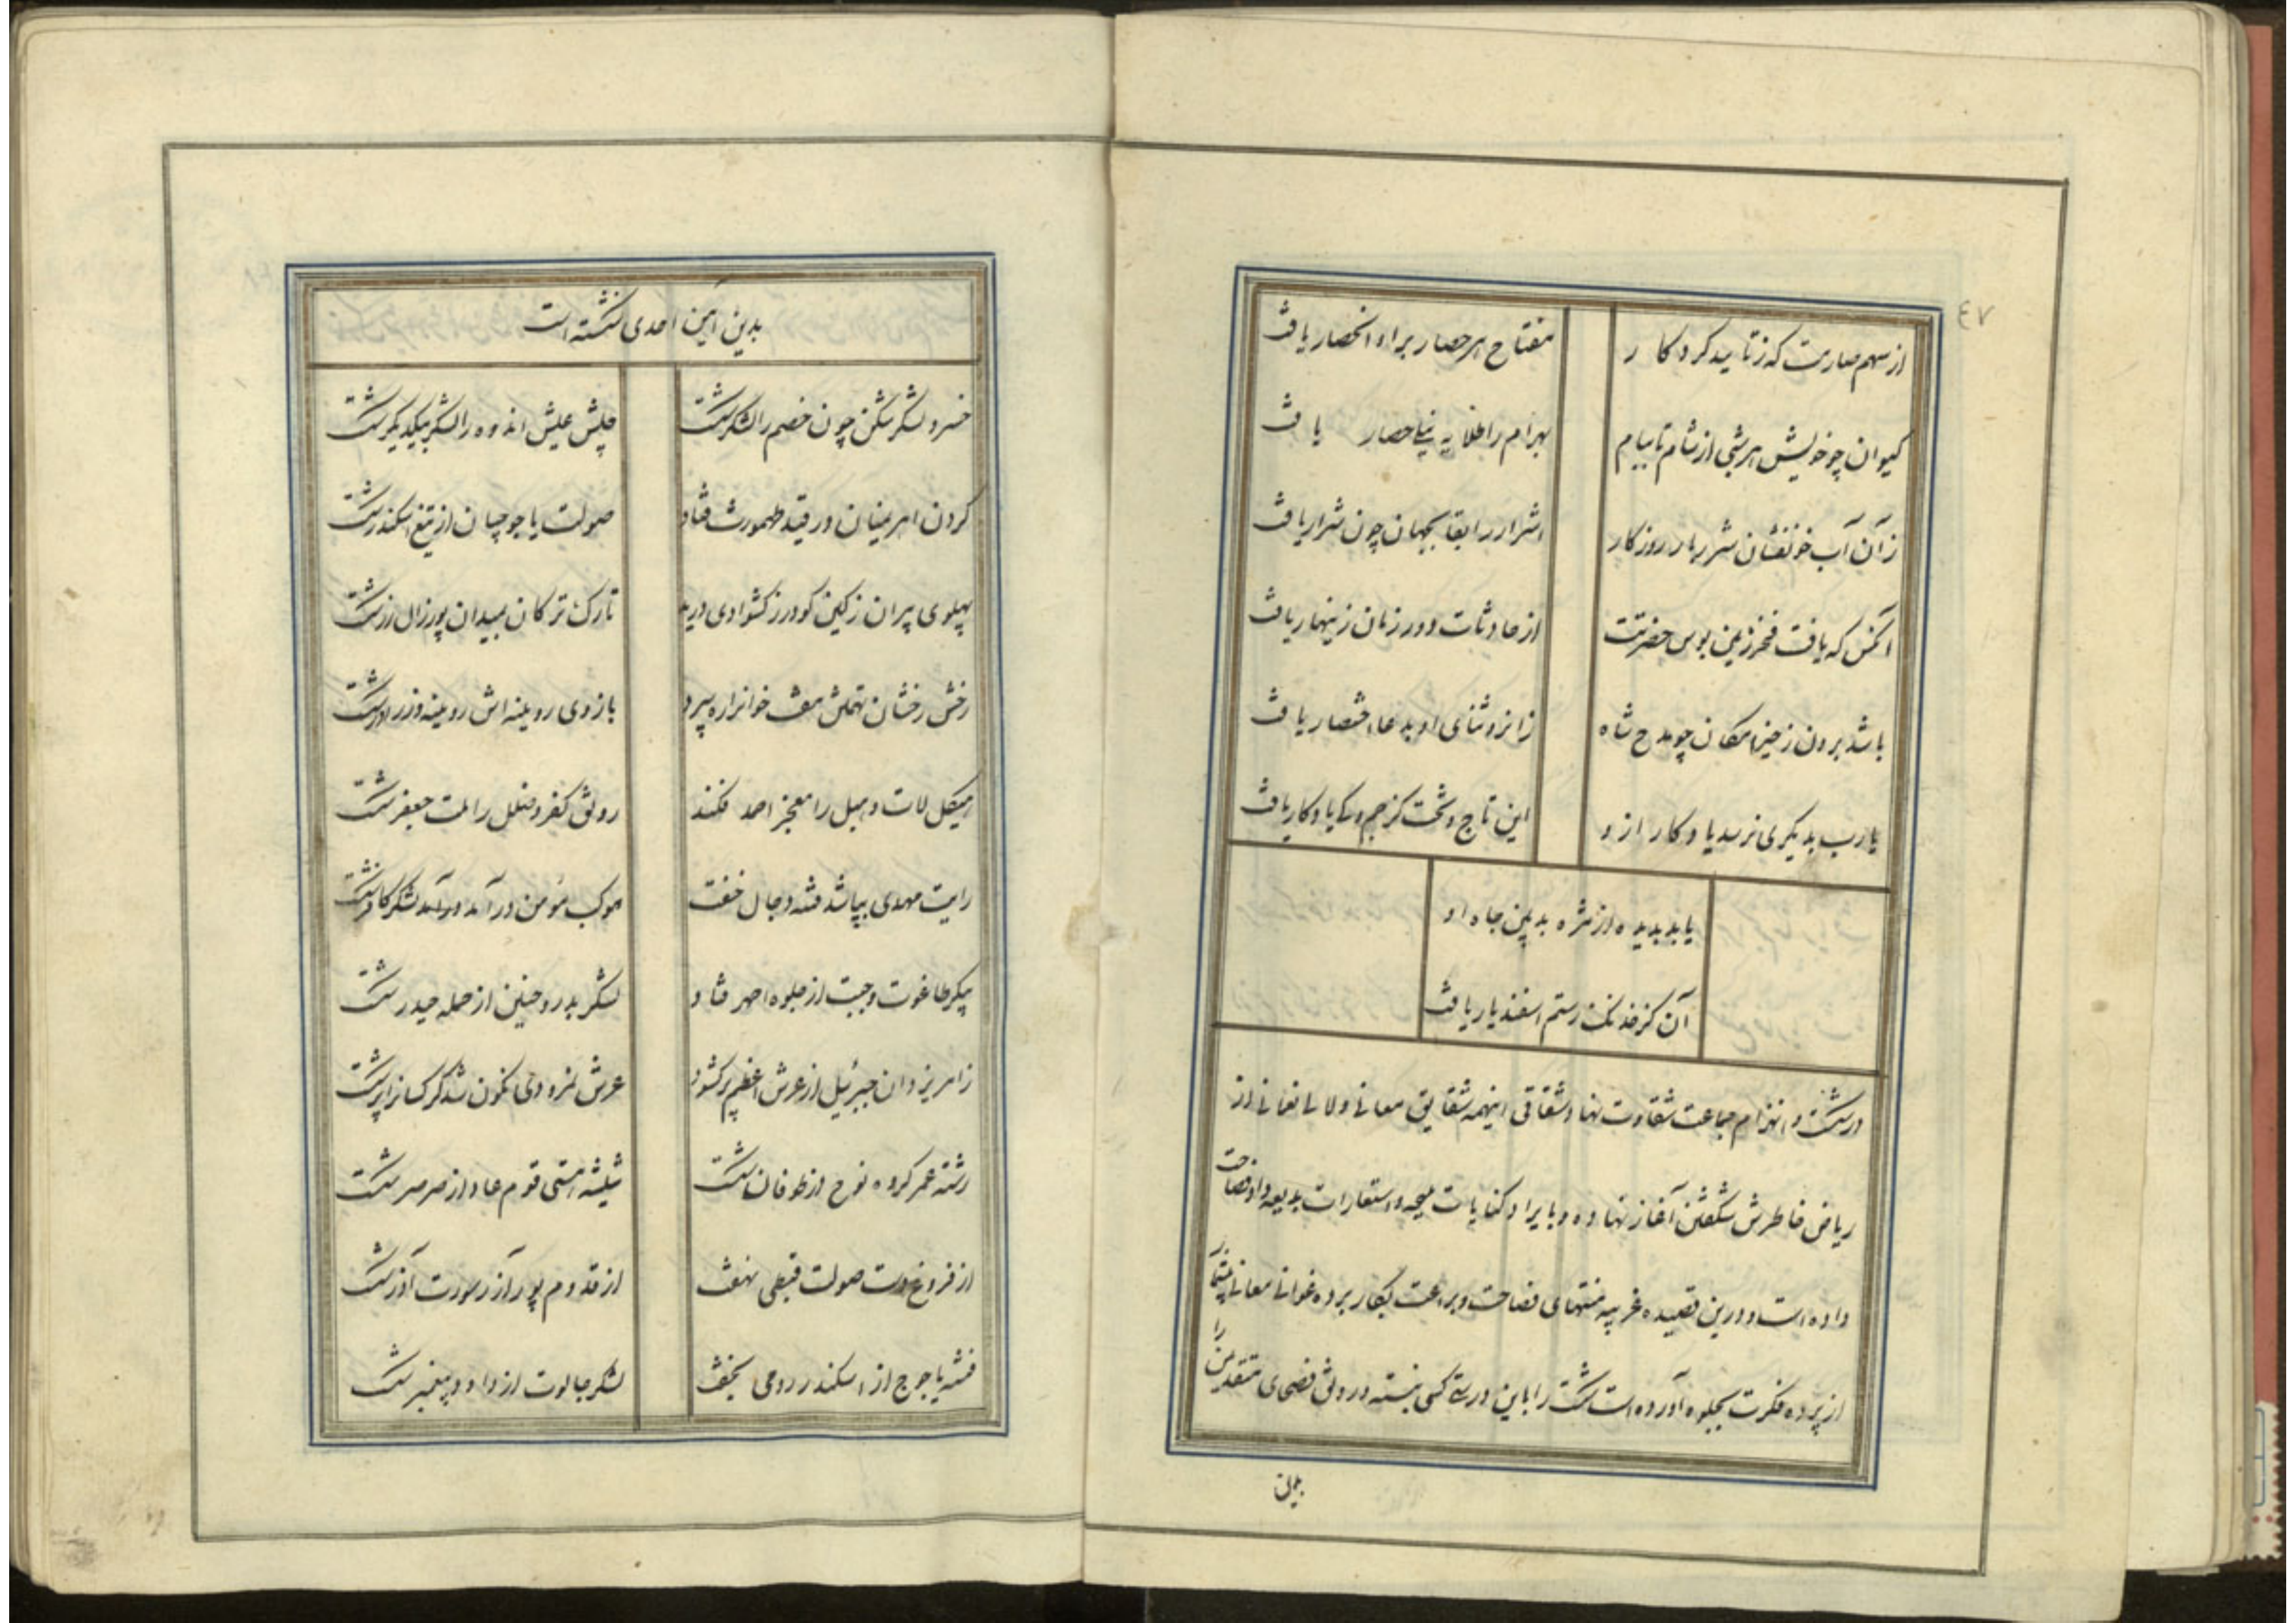 ٤٧
از سهم صارمت که ز تایید کردکار
مفتاح هر حصار بر او انحصار یافت
کیوان چو خویش هر شبی از شام تا بیام
بهرام را طلایه نیلی حصار یافت
زآن آب خونفشان شرر بار روزکار
اشرار را بقا بجهان چون شرار یافت
آنکس که یافت فخر زمین بوس حضرتت
از حادثات دور زمان زینهار یافت
باشد برون ز حیز امکان چو مدح شاه
زانرو ثنای او بدعا اختصار یافت
یارب بدیکری نرسد یادکار ازو
این تاج و تخت کز جم و کی یادکار یافت
یابد بدیده از مژه بدبین جاه او
آن کز خدنک رستم اسفندیار یافت
در شکست و انهزام جماعت شقاوت نهاد شقاقی اینهمه شقایق معانی و لالی نعمانی از
ریاض خاطرش شکفتن آغاز نهاده و بایراد کنایات ملیحه و استعارات بدیعه داد فصاحت
داده است و درین قصیده غریبه منتهای فصاحت و براعت بکار برده غوانی معانی
از پرده فکرت بجلوه آورده است شکست را باین درستی کسی نبسته و رونق فصحای متقدمین را
بدین
بدین آیین احدی نشکسته است
خسرو لشکر شکن چون خصم را لشکر شکست
جیش عیش اندوه را لشکر بیکدیکر شکست
کردن اهریمنان در قید طهمورث فتاد
صولت یاجوجیان از تیغ اسکندر شکست
پهلوی پیران ز کین کودرز کشوادی درید
تارک ترکان بمیدان پور زال زر شکست
رخش رخشان تهمتن هفت خوانرا ره سپرد
بازوی رویینه اش رویینه دز را در شکست
هیکل لات و هبل را معجز احمد فکند
رونق کفر و ضلل را ملت جعفر شکست
رایت مهدی بپا شد فتنه دجال خفت
موکب مؤمن درآمد درآمد لشکر کافر شکست
پیکر طاغوت و جبت از جلوه احمر فتاد
لشکر بدر و حنین از حمله حیدر شکست
زامر یزدان جبرئیل از عرش اعظم پر کشود
عرش نمرودی نکون شد کرکسانرا پر شکست
رشته عمر کروه نوح از طوفان شکست
شیشه هستی قوم عاد از صرصر شکست
از فروغ دست صولت قبطی نهفت
از قدوم پور آزر سورت آذر شکست
فتنه یاجوج از اسکندر رومی بخفت
لشکر جالوت از داود پیغمبر شکست